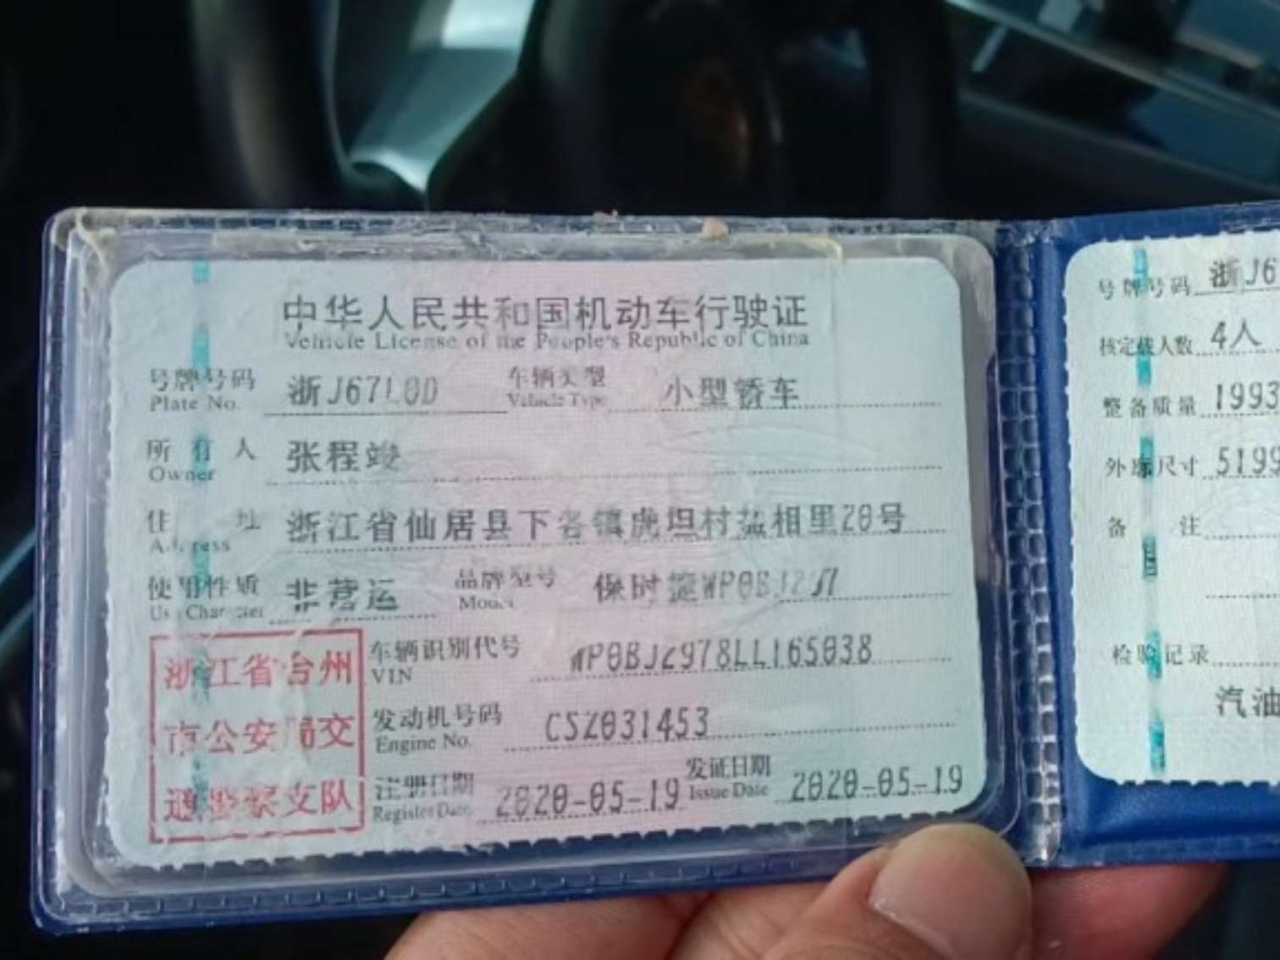 中华人民共和国机动车行驶证
Vehicle License of the People's Republic of China
号牌号码 浙J67L0D 车辆类型 小型轿车
Plate No. Vehicle Type
所有人 张程竣
Owner
住址 浙江省仙居县下各镇虎坦村盐相里20号
Address
使用性质 非营运 品牌型号 保时捷WP0BJ2
Use Character Model
浙江省台州
市公安局交
通警察支队
车辆识别代号 WP0BJ2978LL165038
VIN
发动机号码 CSZ031453
Engine No.
注册日期 2020-05-19 发证日期 2020-05-19
Register Date Issue Date
号牌号码 浙J6
核定载人数 4人
整备质量 1993
外廓尺寸 5199
备注
检验记录
汽油